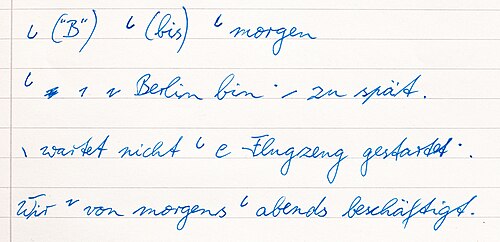 ("B") (bis) morgen
Berlin bin zu spät.
wartet nicht e Flugzeug gestartet.
Wir von morgens abends beschäftigt.